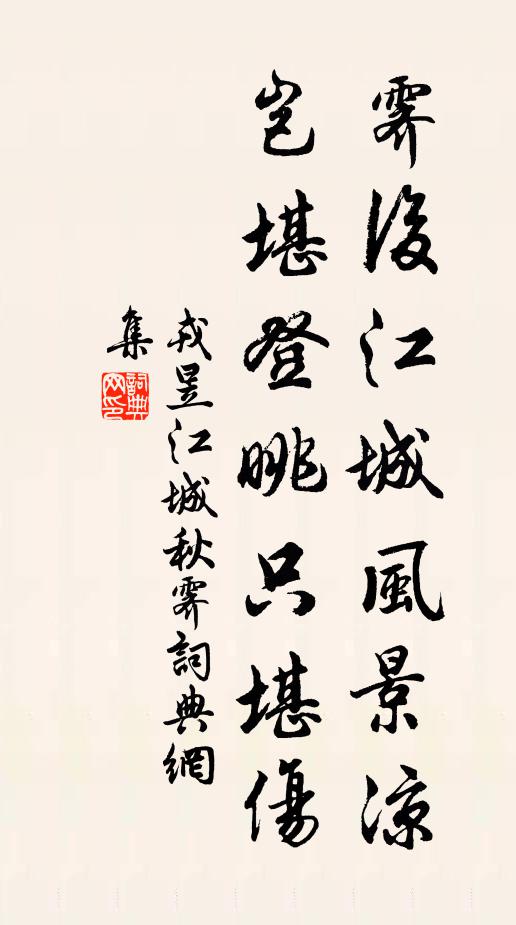 霽後江城風景涼
豈堪登眺只堪傷
戎昱江城秋霽詞典網
集
詞典网印